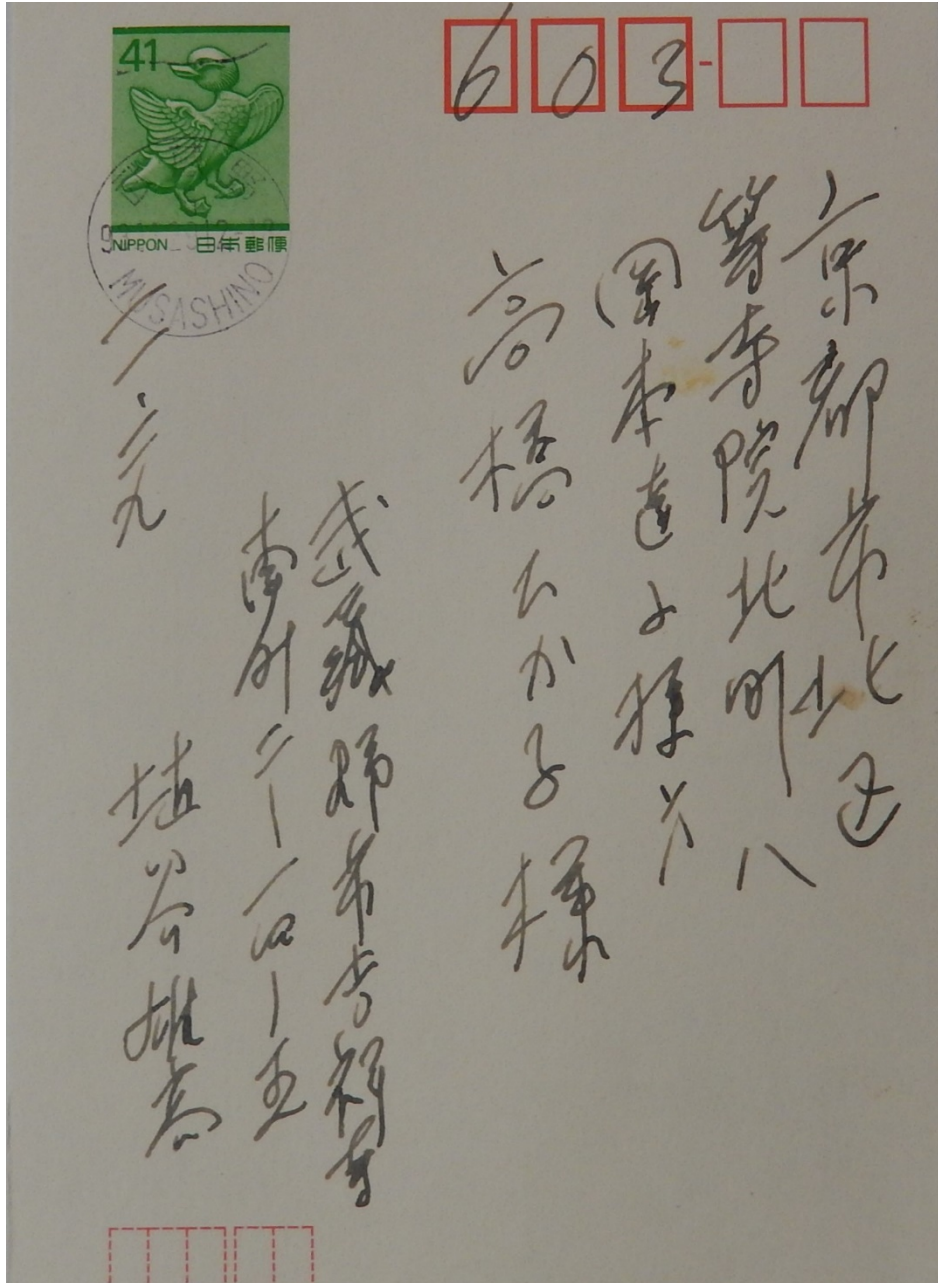 41
NIPPON 日本郵便
MUSASHINO
603
京都市北区
等持院北町八
岡本達子様方
高橋たか子様
武蔵野市吉祥寺
南町二ー一四ー五
埴谷雄高
一、二九